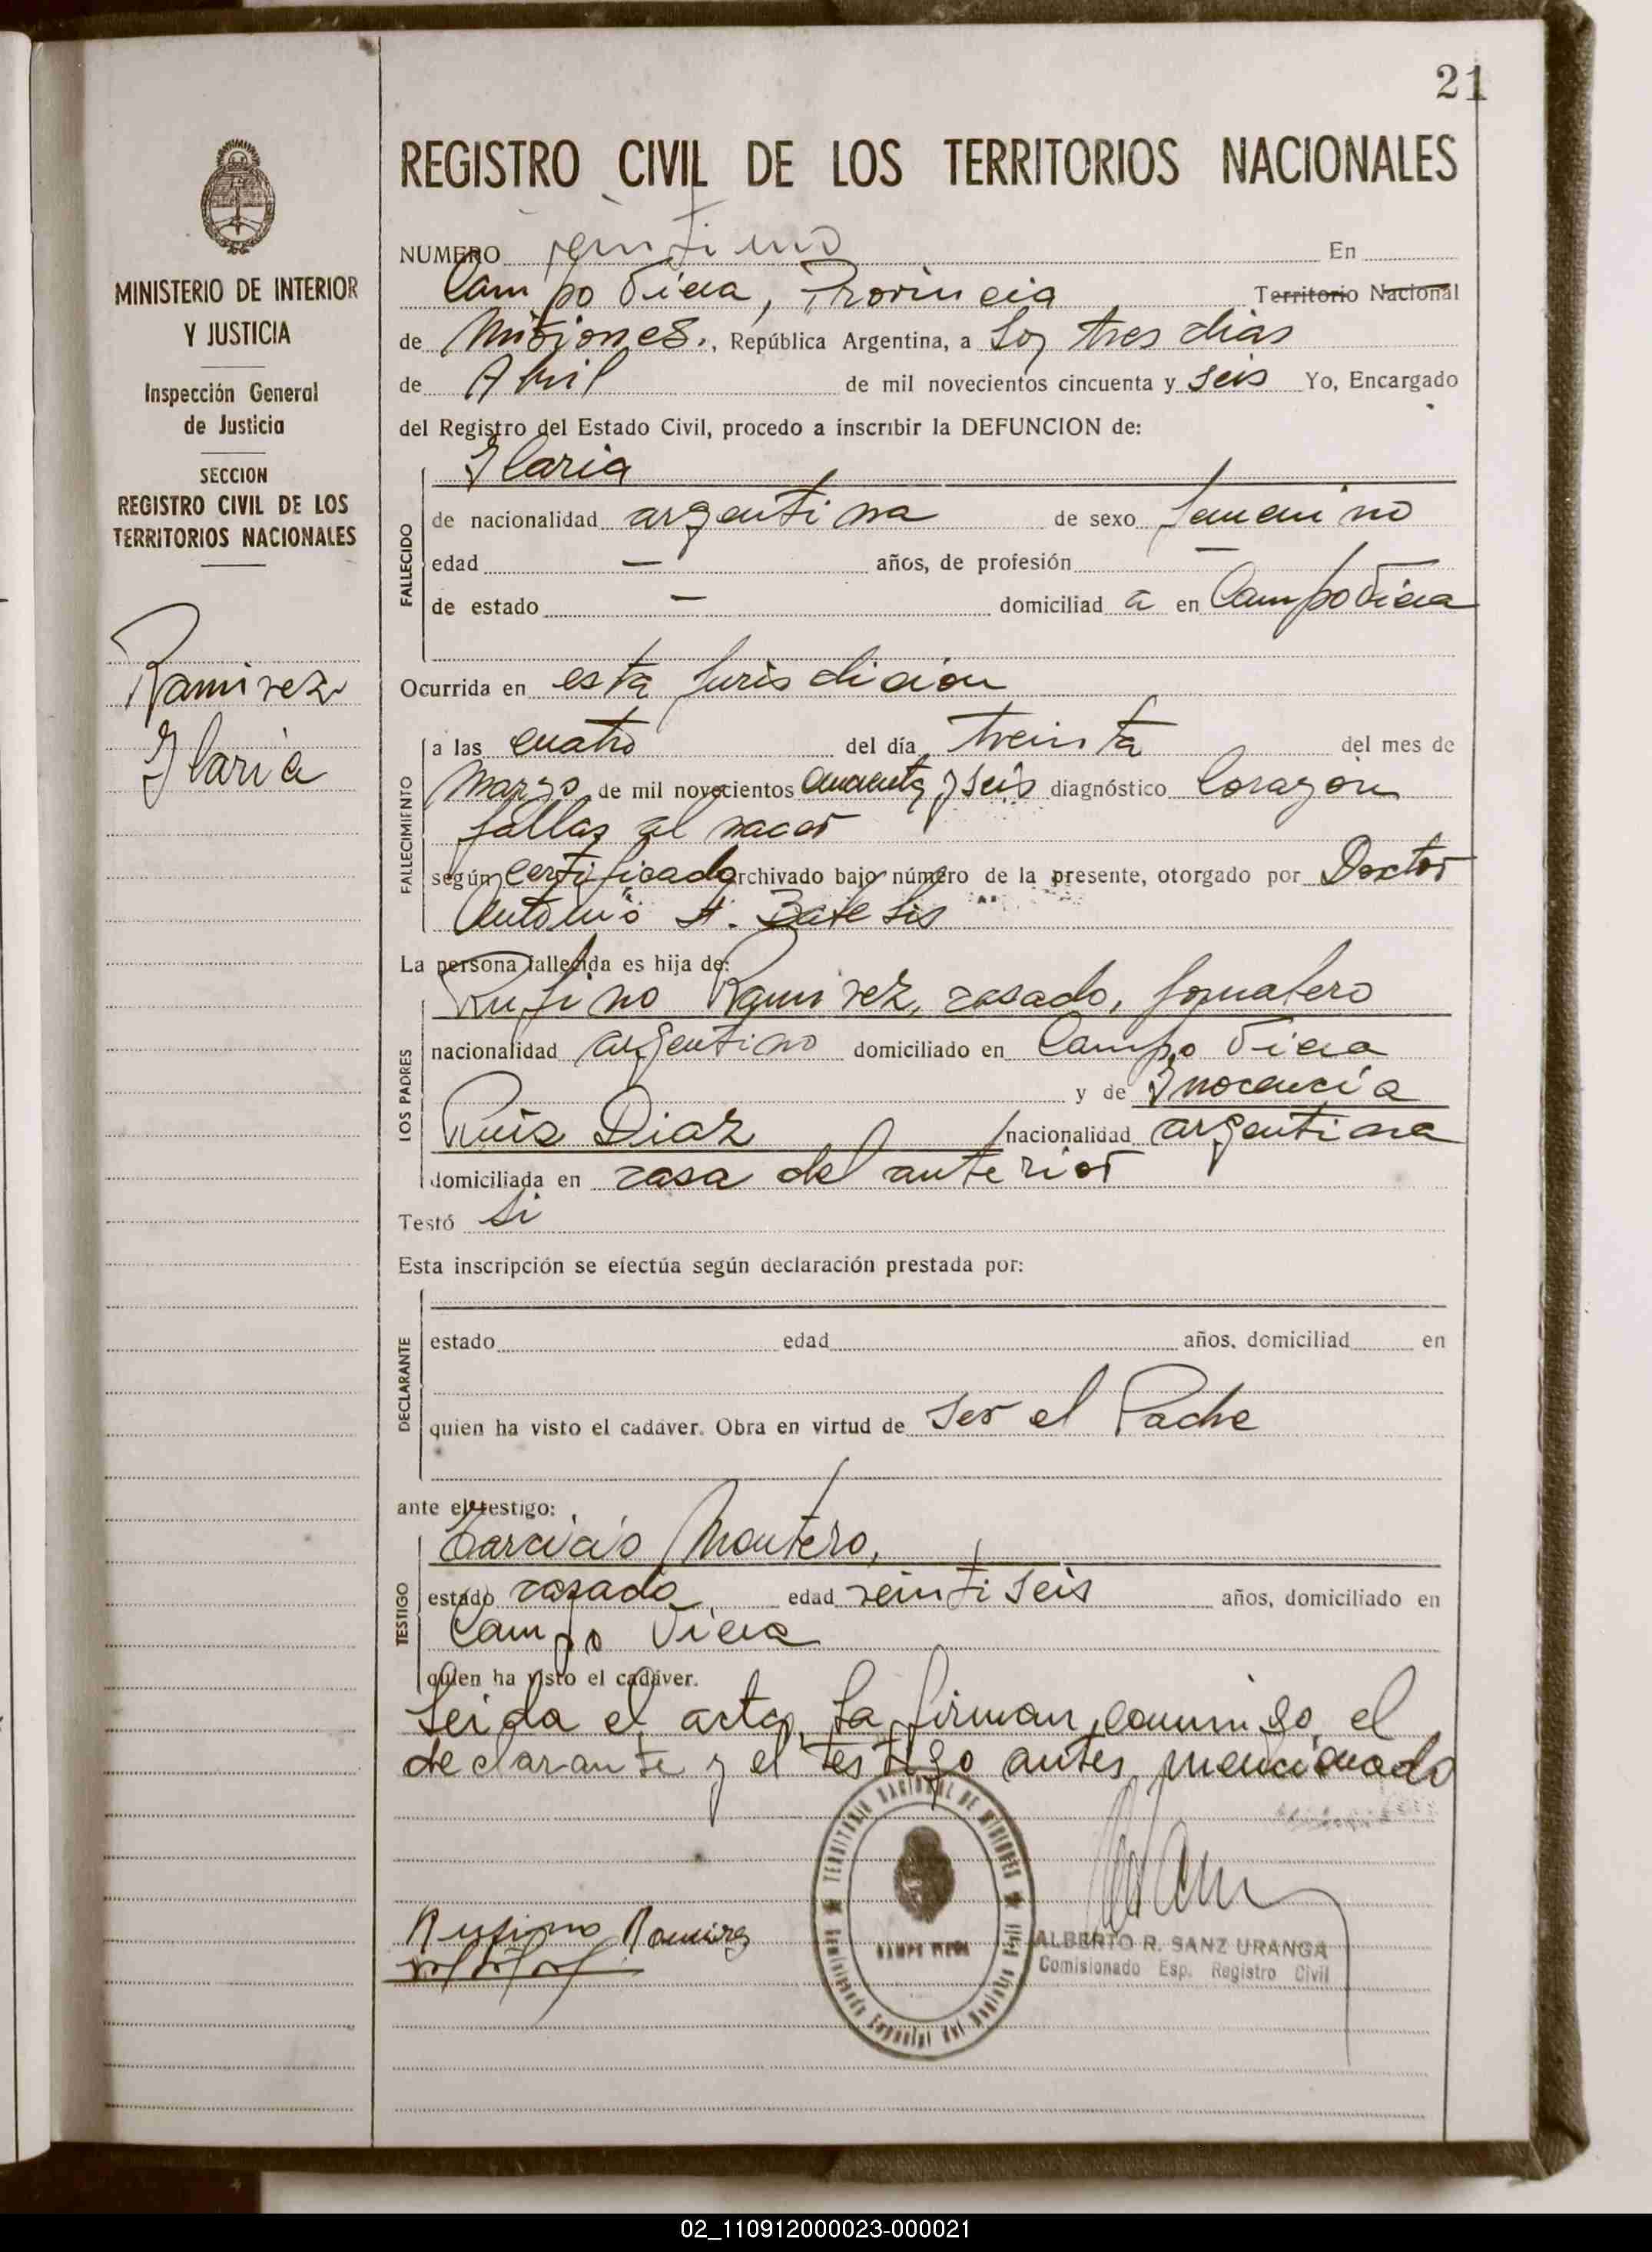 21
REGISTRO CIVIL DE LOS TERRITORIOS NACIONALES
MINISTERIO DE INTERIOR
Y JUSTICIA
Inspección General
de Justicia
SECCION
REGISTRO CIVIL DE LOS
TERRITORIOS NACIONALES
Ramirez
Ilaria
NUMERO veintiuno En
Campo Viera, Provincia Territorio Nacional
de Misiones., República Argentina, a Los tres dias
de Abril de mil novecientos cincuenta y seis Yo, Encargado
del Registro del Estado Civil, procedo a inscribir la DEFUNCION de:
Ilaria
FALLECIDO
de nacionalidad argentina de sexo femenino
edad — años, de profesión —
de estado — domiciliad a en Campo Viera
Ocurrida en esta Jurisdicion
FALLECIMIENTO
a las cuatro del día treinta del mes de
Marzo de mil novecientos y seis diagnóstico Corazon
fallas al nacer
según certificado archivado bajo número de la presente, otorgado por Doctor
Antonio A.
La persona fallecida es hija de:
LOS PADRES
Rufino Ramirez, casado, Jornalero
nacionalidad argentino domiciliado en Campo Viera
y de Inocencia
Ruis Diaz nacionalidad argentina
domiciliada en casa del anterior
Testó Si
Esta inscripción se efectúa según declaración prestada por:
DECLARANTE
estado edad años, domiciliad en
quien ha visto el cadáver. Obra en virtud de Ser el Padre
ante el testigo:
TESTIGO
Montero,
estado casado, edad veintiseis años, domiciliado en
Campo Viera
quien ha visto el cadáver.
Leida el acta, La firman conmigo el
declarante y el testigo antes mencionado
TERRITORIO NACIONAL DE MISIONES
CAMPO VIERA
Rufino Ramirez
ALBERTO R. SANZ URANGA
Comisionado Esp. Registro Civil
02_110912000023-000021